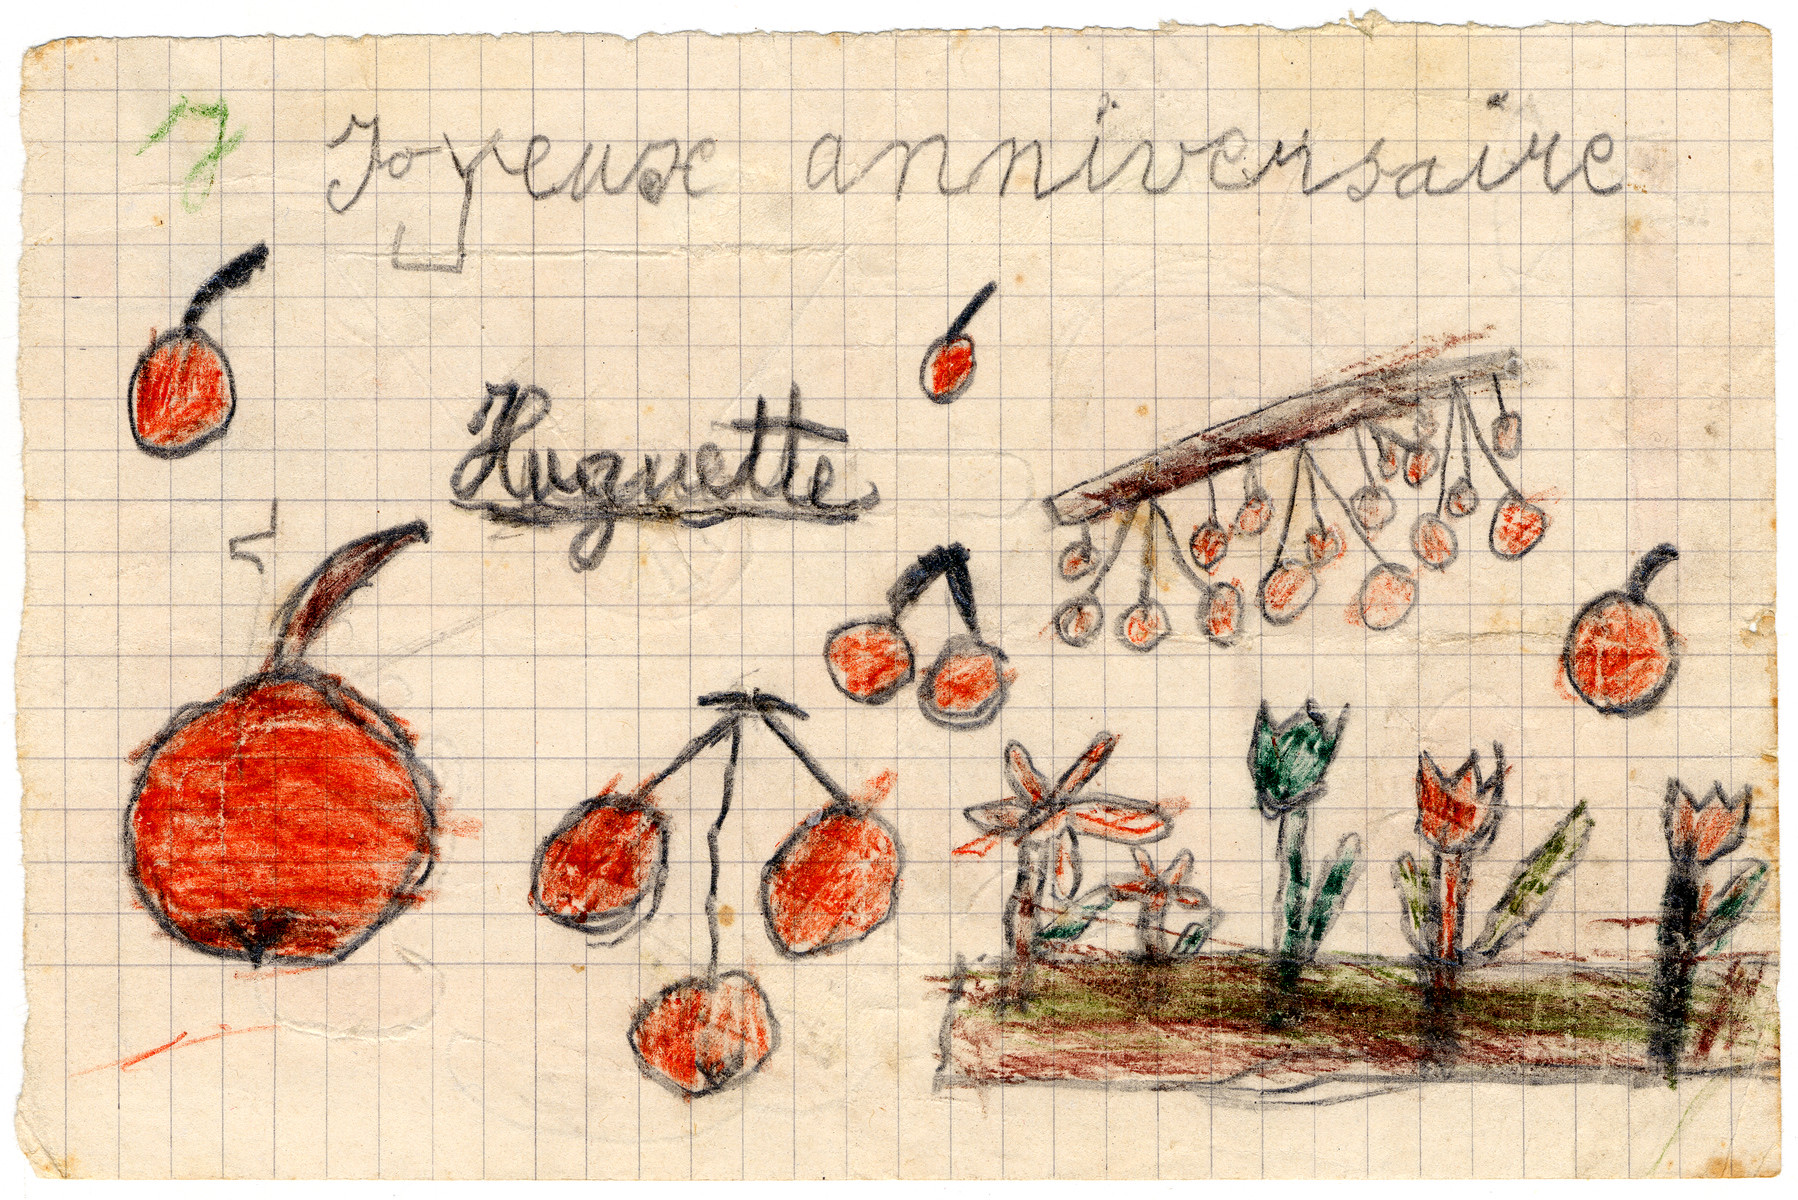 J Joyeux anniversaire
Huguette